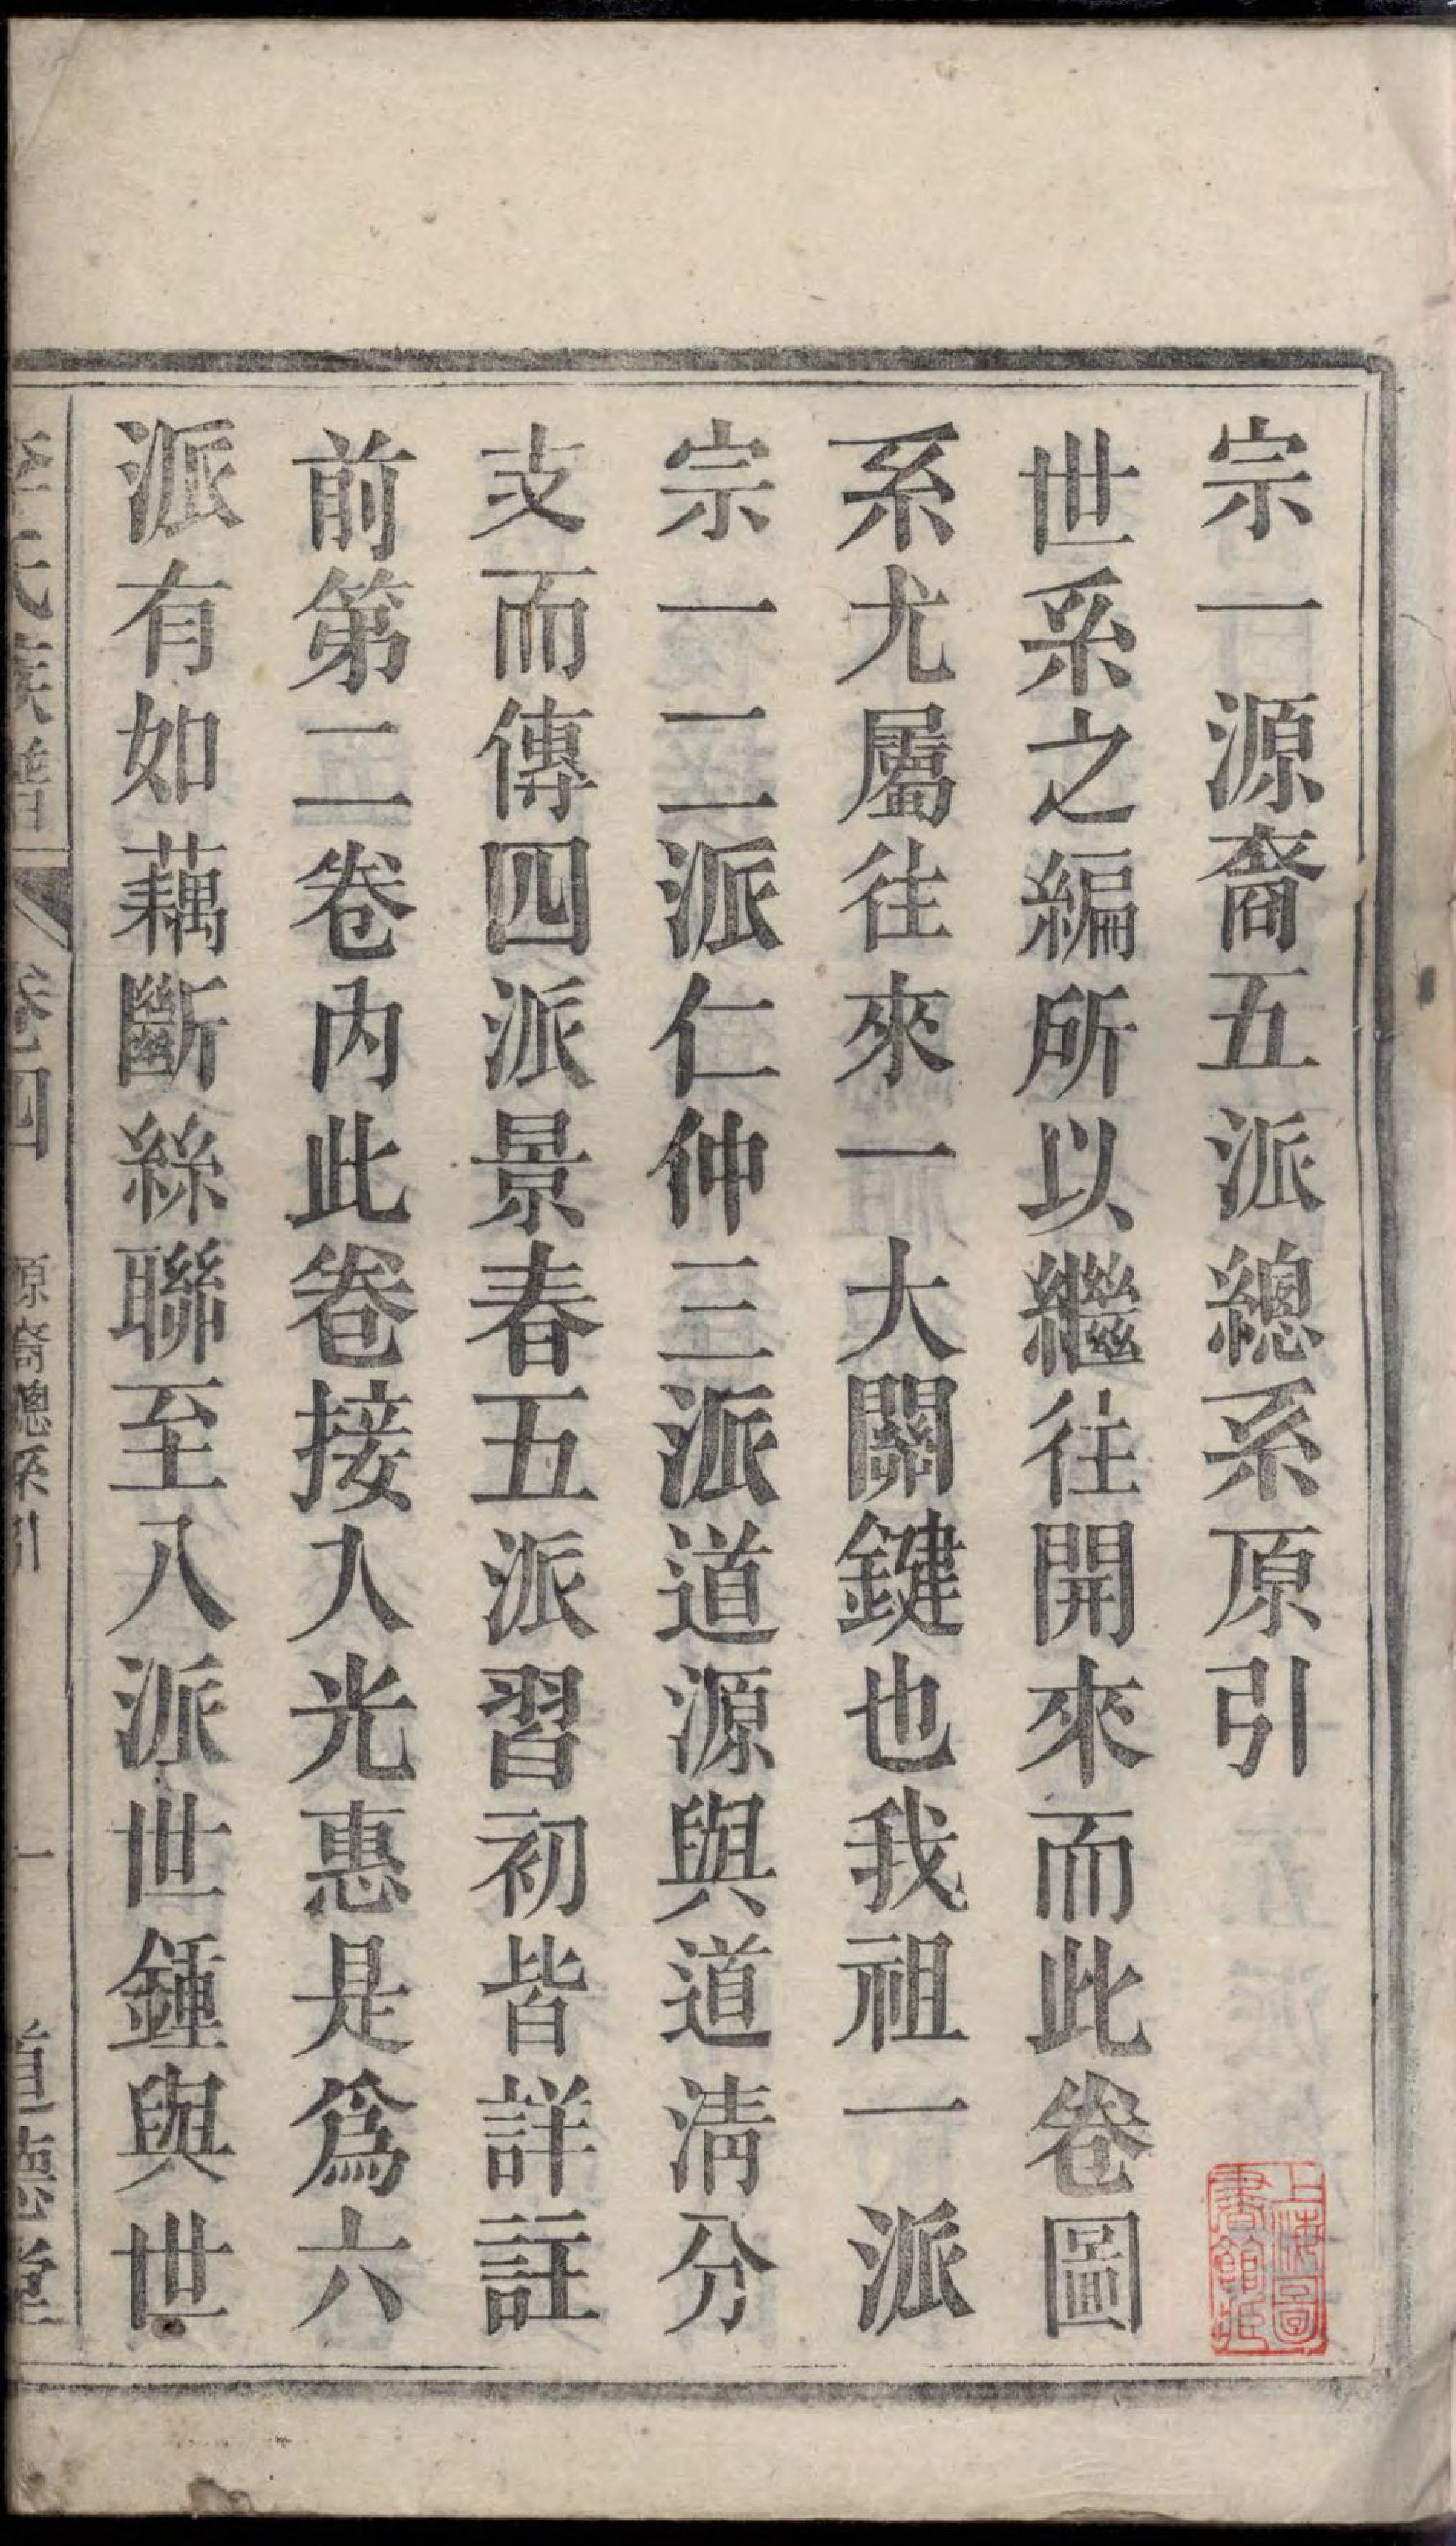 宗一源裔五派總系原引
世系之編所以繼往開來而此卷圖
系尤屬往來一大關鍵也我祖一派
宗一二派仁仲三派道源與道淸分
支而傳四派景春五派習初皆詳註
前第二卷內此卷接入光惠是爲六
派有如藕斷絲聯至八派世鍾與世
李氏族譜
卷四
源裔總系引
一
道德堂
上海圖
書館藏